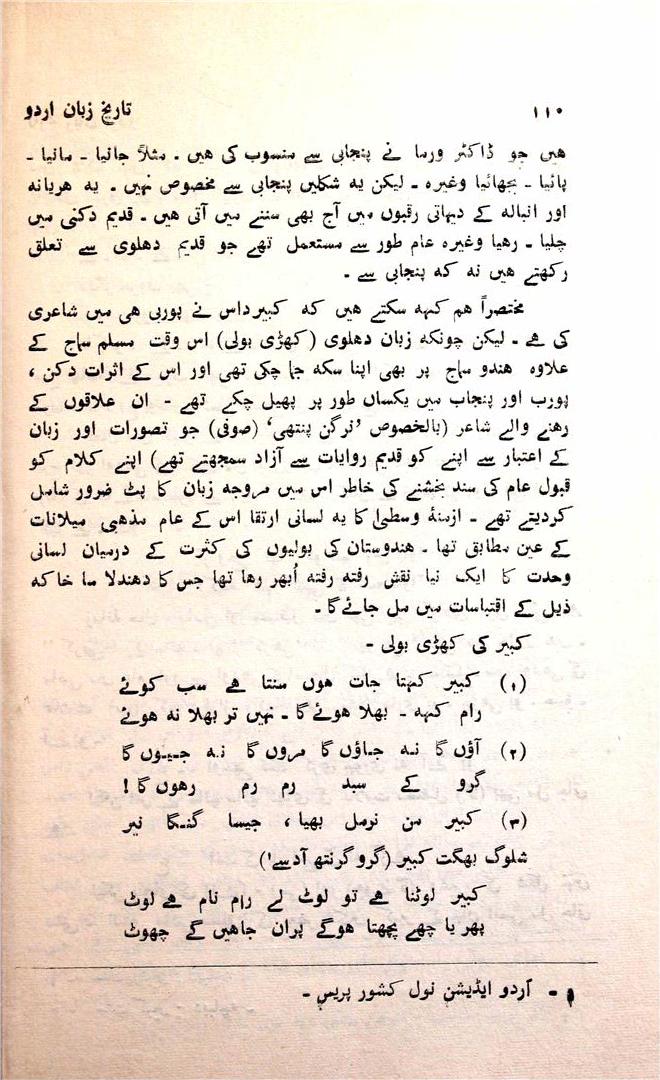 ۱۱۰
تاریخ زبان اردو
ہیں جو ڈاکٹر ورما نے پنجابی سے منسوب کی ہیں ۔ مثلاً جانیا ۔ مانیا ۔
پائیا ۔ بجھائیا وغیرہ ۔ لیکن یہ شکلیں پنجابی سے مخصوص نہیں ۔ یہ ہریانہ
اور انبالہ کے دیہاتی رقبوں میں آج بھی سننے میں آتی ہیں ۔ قدیم دکنی میں
چلیا ۔ رھیا وغیرہ عام طور سے مستعمل تھے جو قدیم دھلوی سے تعلق
رکھتے ہیں نہ کہ پنجابی سے ۔
مختصراً ہم کہہ سکتے ہیں کہ کبیرداس نے پوربی ہی میں شاعری
کی ہے ۔ لیکن چونکہ زبان دھلوی (کھڑی بولی) اس وقت مسلم سماج کے
علاوہ ہندو سماج پر بھی اپنا سکہ جما چکی تھی اور اس کے اثرات دکن ،
پورب اور پنجاب میں یکساں طور پر پھیل چکے تھے ۔ ان علاقوں کے
رہنے والے شاعر (بالخصوص ’نرگن پنتھی‘ (صوفی) جو تصورات اور زبان
کے اعتبار سے اپنے کو قدیم روایات سے آزاد سمجھتے تھے) اپنے کلام کو
قبول عام کی سند بخشنے کی خاطر اس میں مروجہ زبان کا پٹ ضرور شامل
کردیتے تھے ۔ ازمنۂ وسطیٰ کا یہ لسانی ارتقا اس کے عام مذہبی میلانات
کے عین مطابق تھا ۔ ہندوستان کی بولیوں کی کثرت کے درمیان لسانی
وحدت کا ایک نیا نقش رفتہ رفتہ اُبھر رہا تھا جس کا دھندلا سا خاکہ
ذیل کے اقتباسات میں مل جائےگا ۔
کبیر کی کھڑی بولی ۔
(۱) کبیر کہتا جات ہوں سنتا ہے سب کوئے
رام کہہ ۔ بھلا ہوئے گا ۔ نہیں تر بھلا نہ ہوئے
(۲) آؤں گا نہ جاؤں گا مروں گا نہ جیوں گا
گرو کے سبد رم رم رہوں گا !
(۳) کبیر من نرمل بھیا ، جیسا گنگا نیر
شلوگ بھگت کبیر (گرو گرنتھ آدسے۱)
کبیر لوٹنا ہے تو لوٹ لے رام نام ہے لوٹ
پھر یا چھے پچھتا ہوگے پران جاہیں گے چھوٹ
۱ ۔ اردو ایڈیشن نول کشور پریس ۔